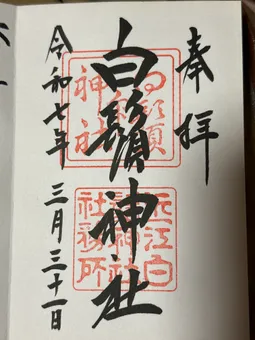 奉拝
白鬚神社
近江白鬚神社社務所
令和七年 三月三十一日